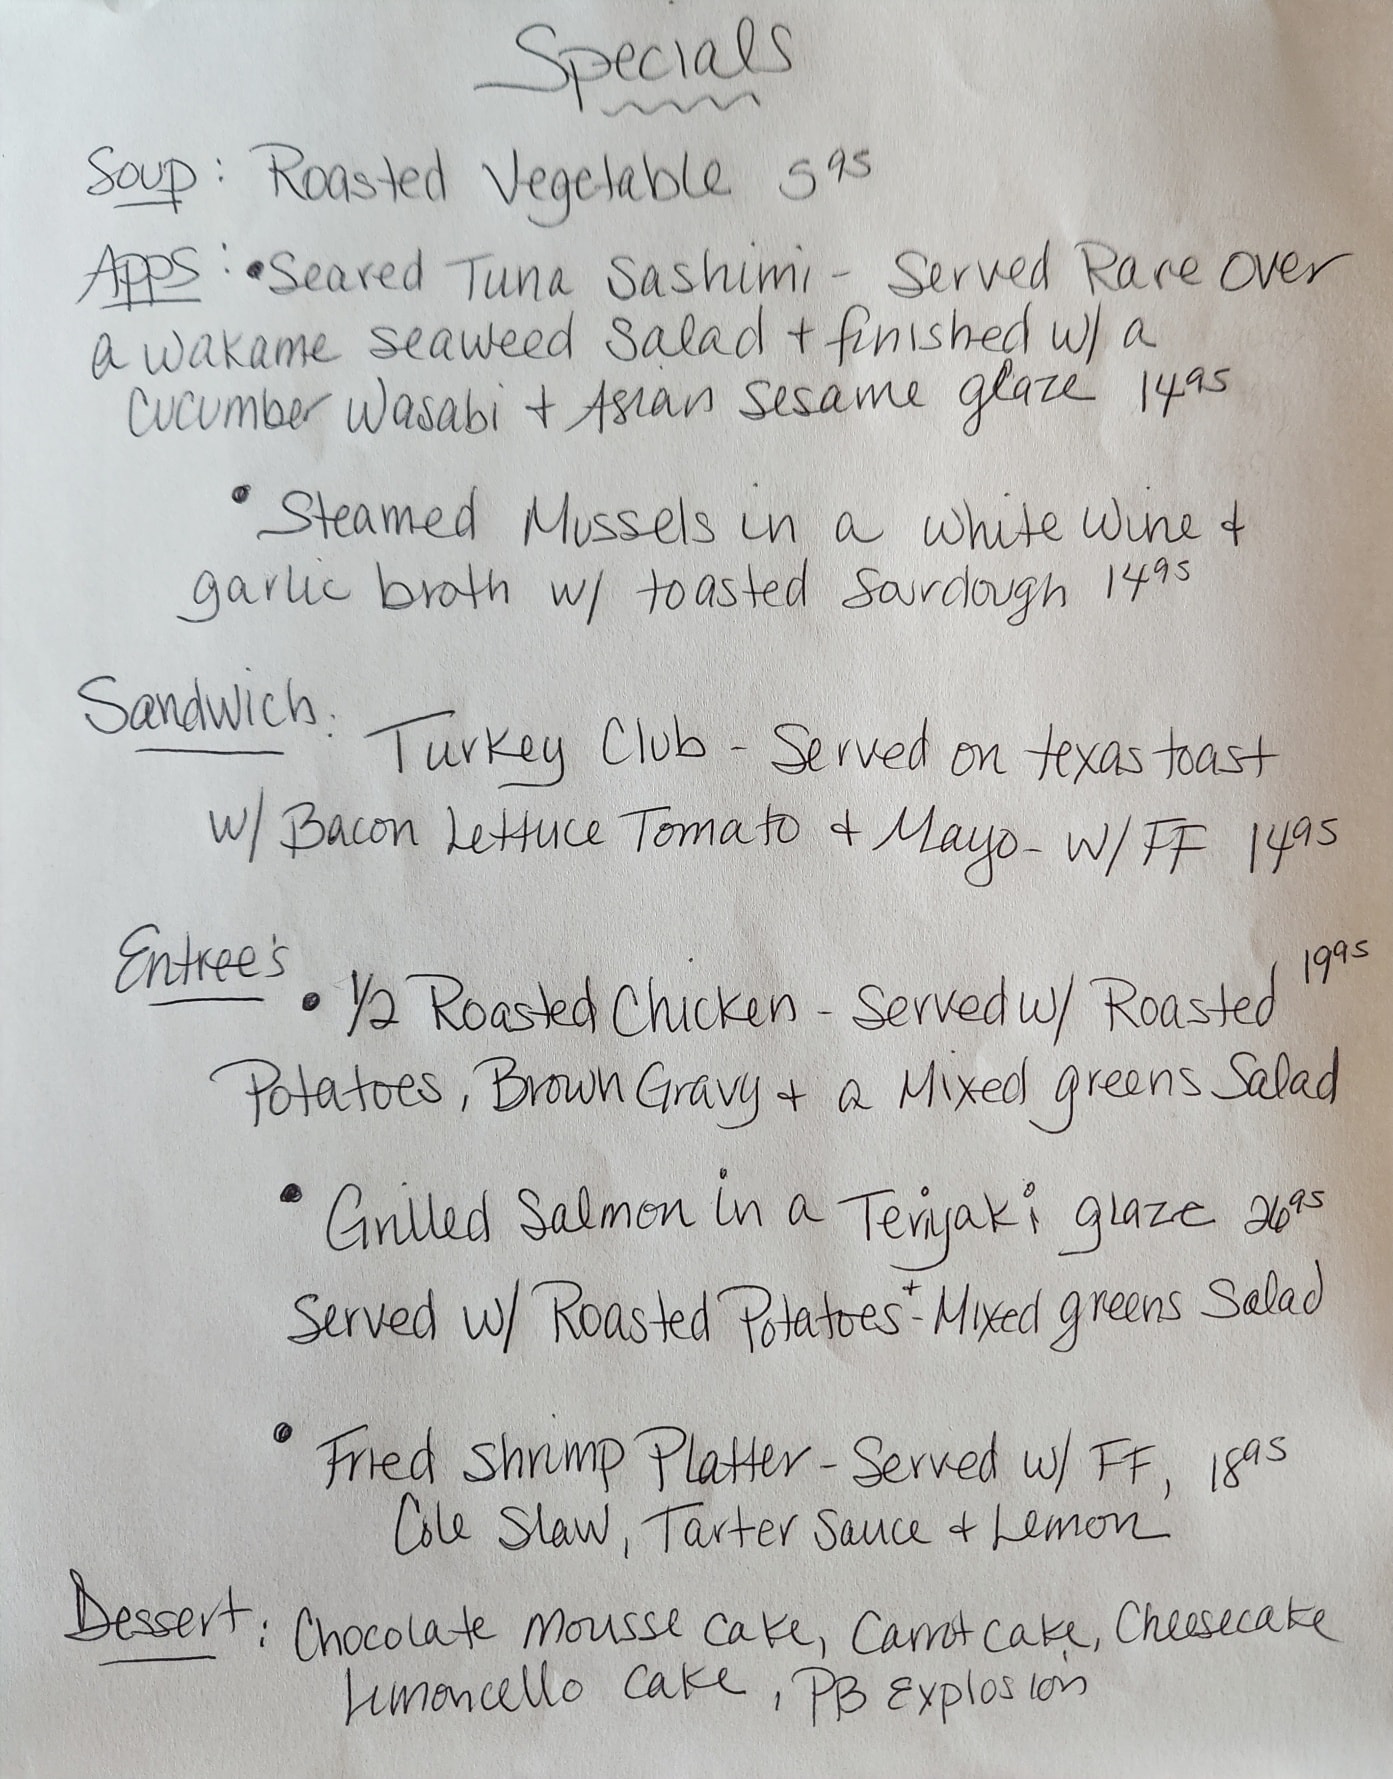 Specials
Soup: Roasted Vegetable 5 95
Apps: • Seared Tuna Sashimi - Served Rare Over
a wakame seaweed Salad + finished w/ a
Cucumber Wasabi + Asian Sesame glaze 14 95
• Steamed Mussels in a white wine +
garlic broth w/ toasted Sourdough 14 95
Sandwich:
Turkey Club - Served on texas toast
w/ Bacon Lettuce Tomato + Mayo - w/ FF 14 95
Entree's
• 1/2 Roasted Chicken - Served w/ Roasted 19 95
Potatoes, Brown Gravy + a Mixed greens Salad
• Grilled Salmon in a Teriyaki glaze 26 95
Served w/ Roasted Potatoes + - Mixed greens Salad
• Fried Shrimp Platter - Served w/ FF, 18 95
Cole Slaw, Tarter Sauce + Lemon
Dessert: Chocolate Mousse Cake, Carrot Cake, Cheesecake
Limoncello Cake, PB Explosion